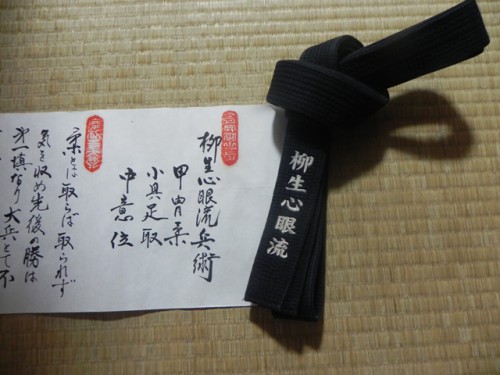 柳生心眼流
柳生心眼流兵術
甲冑柔
小具足取
中意位
柔とは取らば取られず
気を収め先後の勝は
第一慎なり大兵とて不